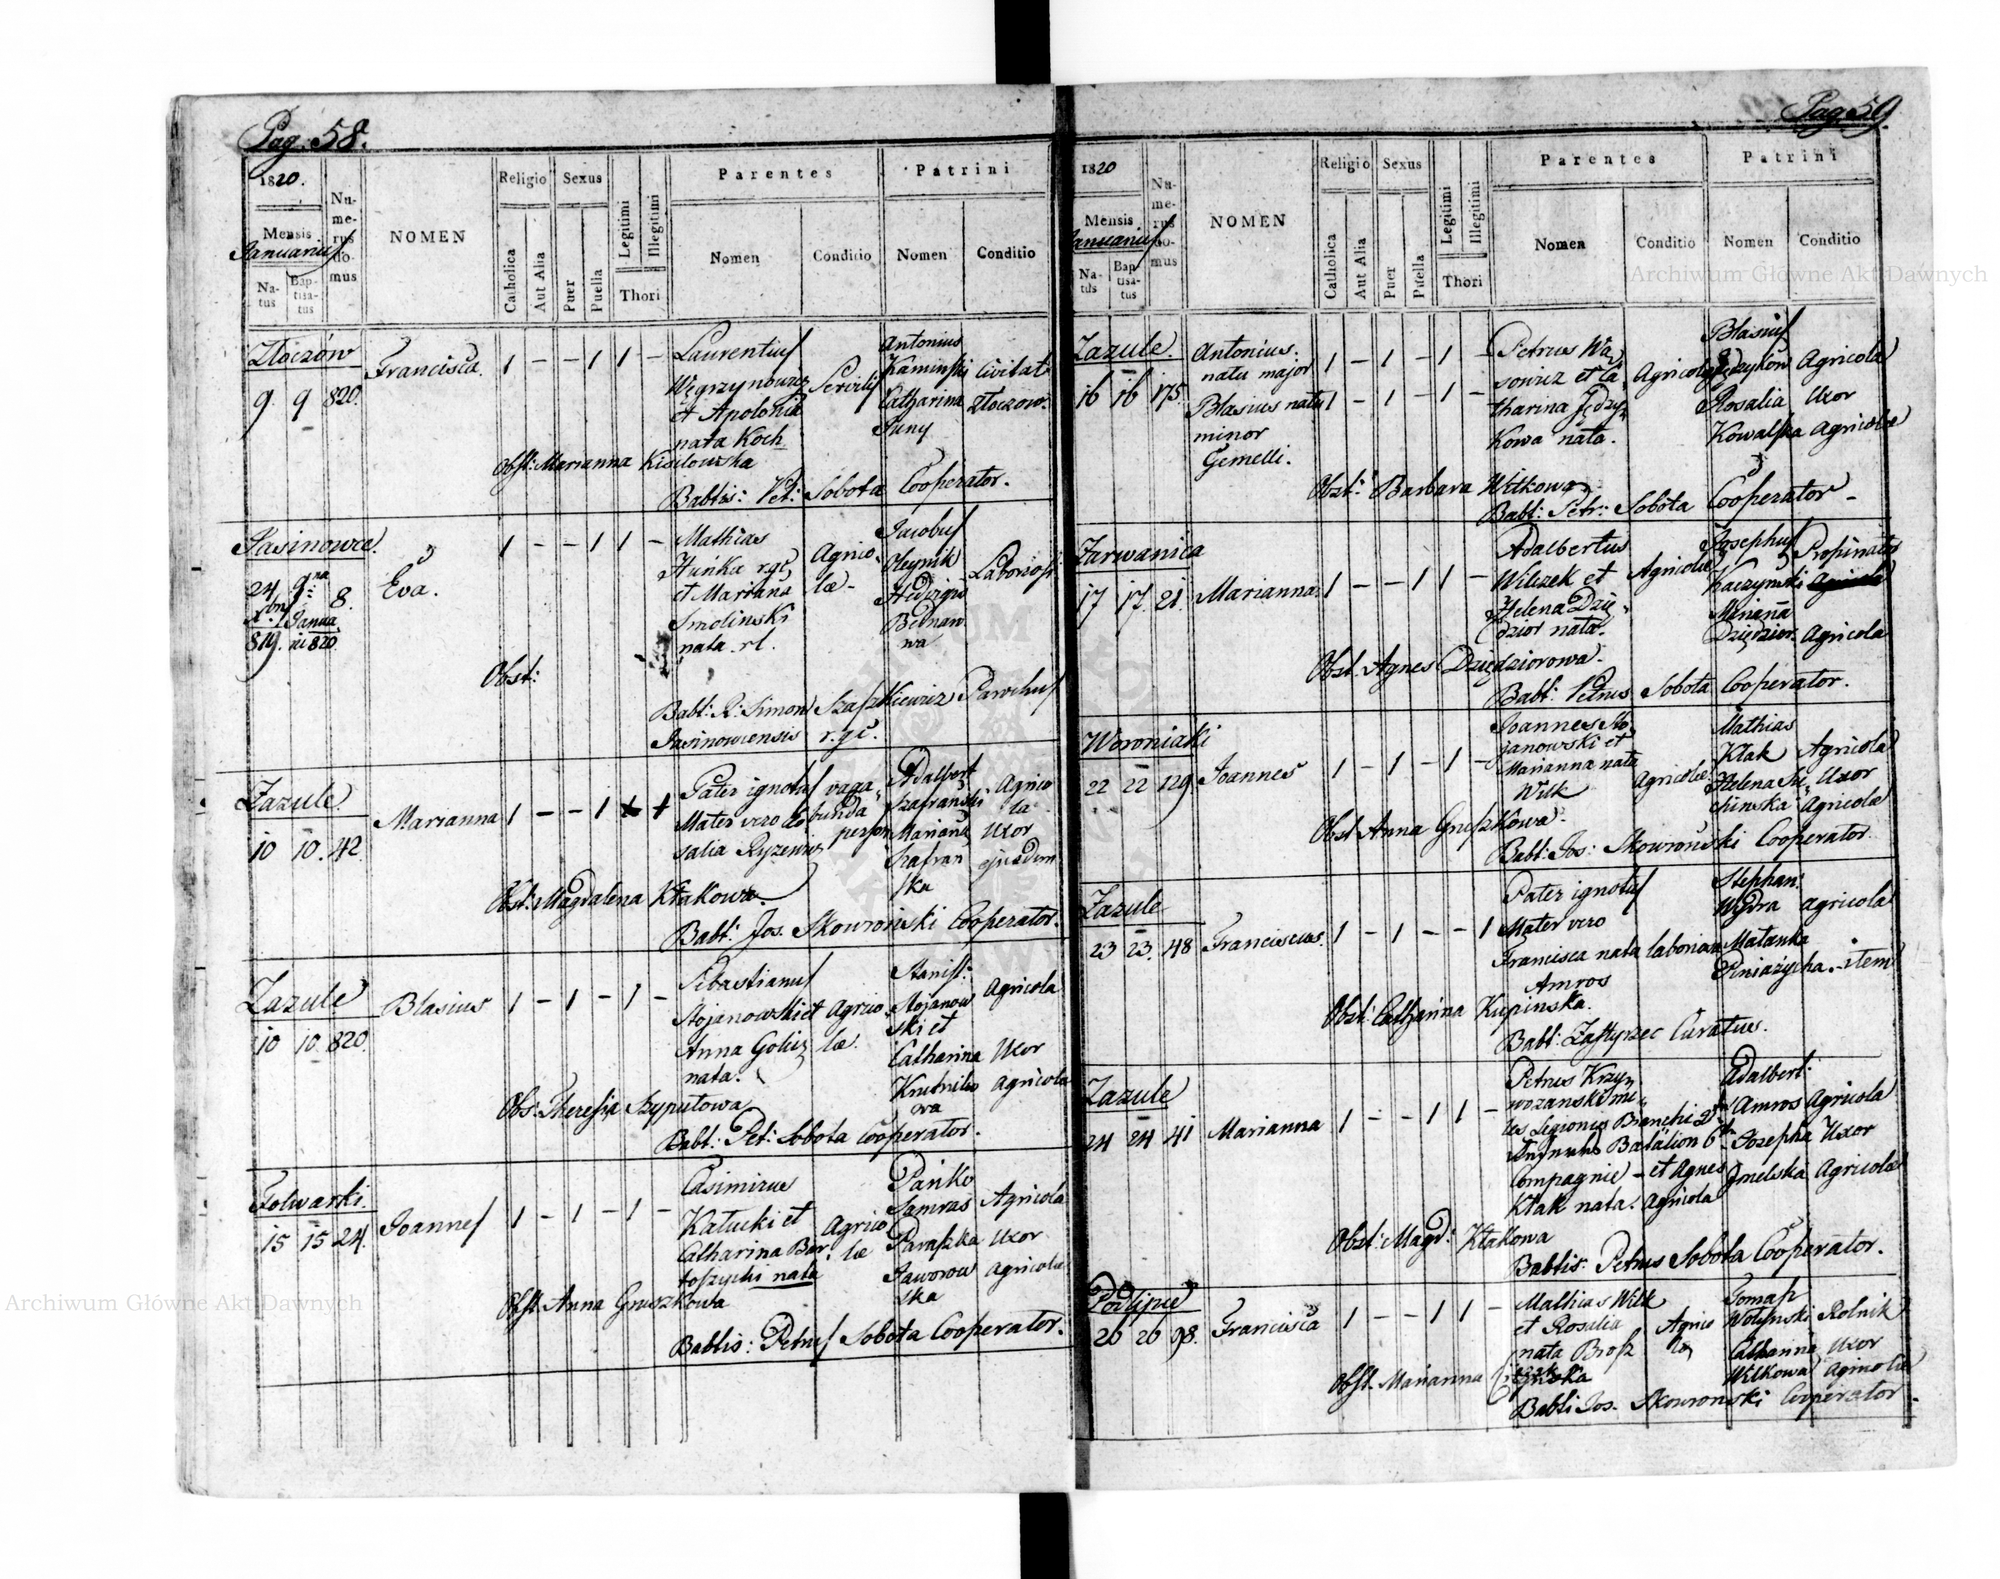 Pag: 58.
1820.
Mensis
Januarius
Natus
Baptisatus
Numerus domus
NOMEN
Religio
Catholica
Aut Alia
Sexus
Puer
Puella
Legitimi
Illegitimi
Thori
Parentes
Nomen
Conditio
Patrini
Nomen
Conditio
Złoczów
9 9 820.
Francisca.
1 – – 1 1 –
Laurentius
Węgrzynowicz
et Apolonia
nata Koch
Servilis
Antonius
Kaminski
Catharina
Juny
Civitat:
Złoczow:
Obst: Marianna Kisilowska
Babtis: Pet: Sobota Cooperator.
Jasinowce.
24 9na 8.
Xbris Janua
819. rii 820
Eva.
1 – – 1 1 –
Mathias
Huńka r.gć.
et Mariana
Smolinski
nata r.l.
Agrico
læ –
Jacobus
Oleynik
Hedvigis
Bednaro
wa
Laboriosi
Obst:
Babt: R: Simon Szaszkiewicz Parochus
Jasinowcensis r.gć.
Zazule
10 10. 42.
Marianna
1 – – 1
Pater ignotus
Mater vero Ro
salia Ryzewicz
vaga
bunda
person
Adalbert
Szafrański
Mariana
Szafran
ska
Agrico
la
Uxor
ejusdem
Obst: Magdalena Kłakowa.
Babt: Jos. Skowroński Cooperator.
Zazule
10 10 820.
Blasius
1 – 1 – 1 –
Sebastianus
Stojanowski et
Anna
nata.
Agrico
læ.
Stanisl:
Stojanow
ski et
Catharina
Agricola
Uxor
Agricola
Obs: Theresia Szyputowa
Babt: Pet: Sobota Cooperator.
Folwarki.
15 15 24.
Joannes
1 – 1 – 1 –
Casimirus
Kałucki et
Catharina Bar
toszycki nata
Agrico
læ
Pańko
Samras
Paraszka
Jaworow
ska
Agricola
Uxor
Agricolæ
Obst. Anna Gruszkowa
Bablis: Petrus Sobota Cooperator.
Pag 59.
1820
Mensis
Januarius
Natus
Baptisatus
Numerus domus
NOMEN
Religio
Catholica
Aut Alia
Sexus
Puer
Puella
Legitimi
Illegitimi
Thori
Parentes
Nomen
Conditio
Patrini
Nomen
Conditio
Zazule.
16 16 175.
Antonius.
natu major
Blasius natu
minor
Gemelli.
1 – 1 – 1 –
1 – 1 – 1 –
Petrus Wą
sowicz et Ca
tharina Jędzy
kowa nata.
Agricolæ
Blasius
Jędzykow
Rosalia
Kowalska
Agricola
Uxor
Agricolæ
Obst: Barbara Wilkowa
Babt: Petr: Sobota Cooperator –
Zarwanica
17 17. 21.
Marianna.
1 – – 1 1 –
Adalbertus
Wilczek et
Helena Dzię
dzior nata.
Agricolæ
Josephus
Kaczynski
Mariana
Dziędzior.
Propinator
Agricola
Obst. Agnes Dziędziorowa.
Babt: Petrus Sobota Cooperator.
Woroniaki
22 22 129
Joannes
1 – 1 – 1 –
Joannes Sto
janowski et
Marianna nata
Wilk
Agricolæ
Mathias
Kłak
Helena Su
chinska
Agricola
Uxor
Agricolæ
Obst Anna Gruszkowa.
Babt: Jos: Skowroński Cooperator
Zazule
23 23. 48
Franciscus.
1 – 1 – – 1
Pater ignotus
Mater vero
Francisca nata
Amros
laboriosa
Stephan:
Wydra
Małanka
Pniażycha.
agricola
– item
Obst: Catharina Kupinska.
Babt: Zasłyrzec Curatus.
Zazule
24 24 41
Marianna
1 – – 1 1 –
Petrus Krzy
wozanski mi
les Legionis Bianchi 2
Batalion 6
Compagnie – et Agnes
Kłak nata. Agricola
Adalbert:
Amros
Josepha
Jmelska
Agricola
Uxor
Agricolæ
Obst: Magd: Kłakowa
Bablis: Petrus Sobota Cooperator.
Podlipie
26 26 98.
Francisca
1 – – 1 1 –
Mathias Wilk
et Rosalia
nata Brosz
Agrico
læ
Tomasz
Wołynski
Catharina
Wilkowa
Rolnik
Uxor
Agricolæ
Obst. Marianna
Babti Jos. Skowronski Cooperator.
Archiwum Główne Akt Dawnych
Archiwum Główne Akt Dawnych